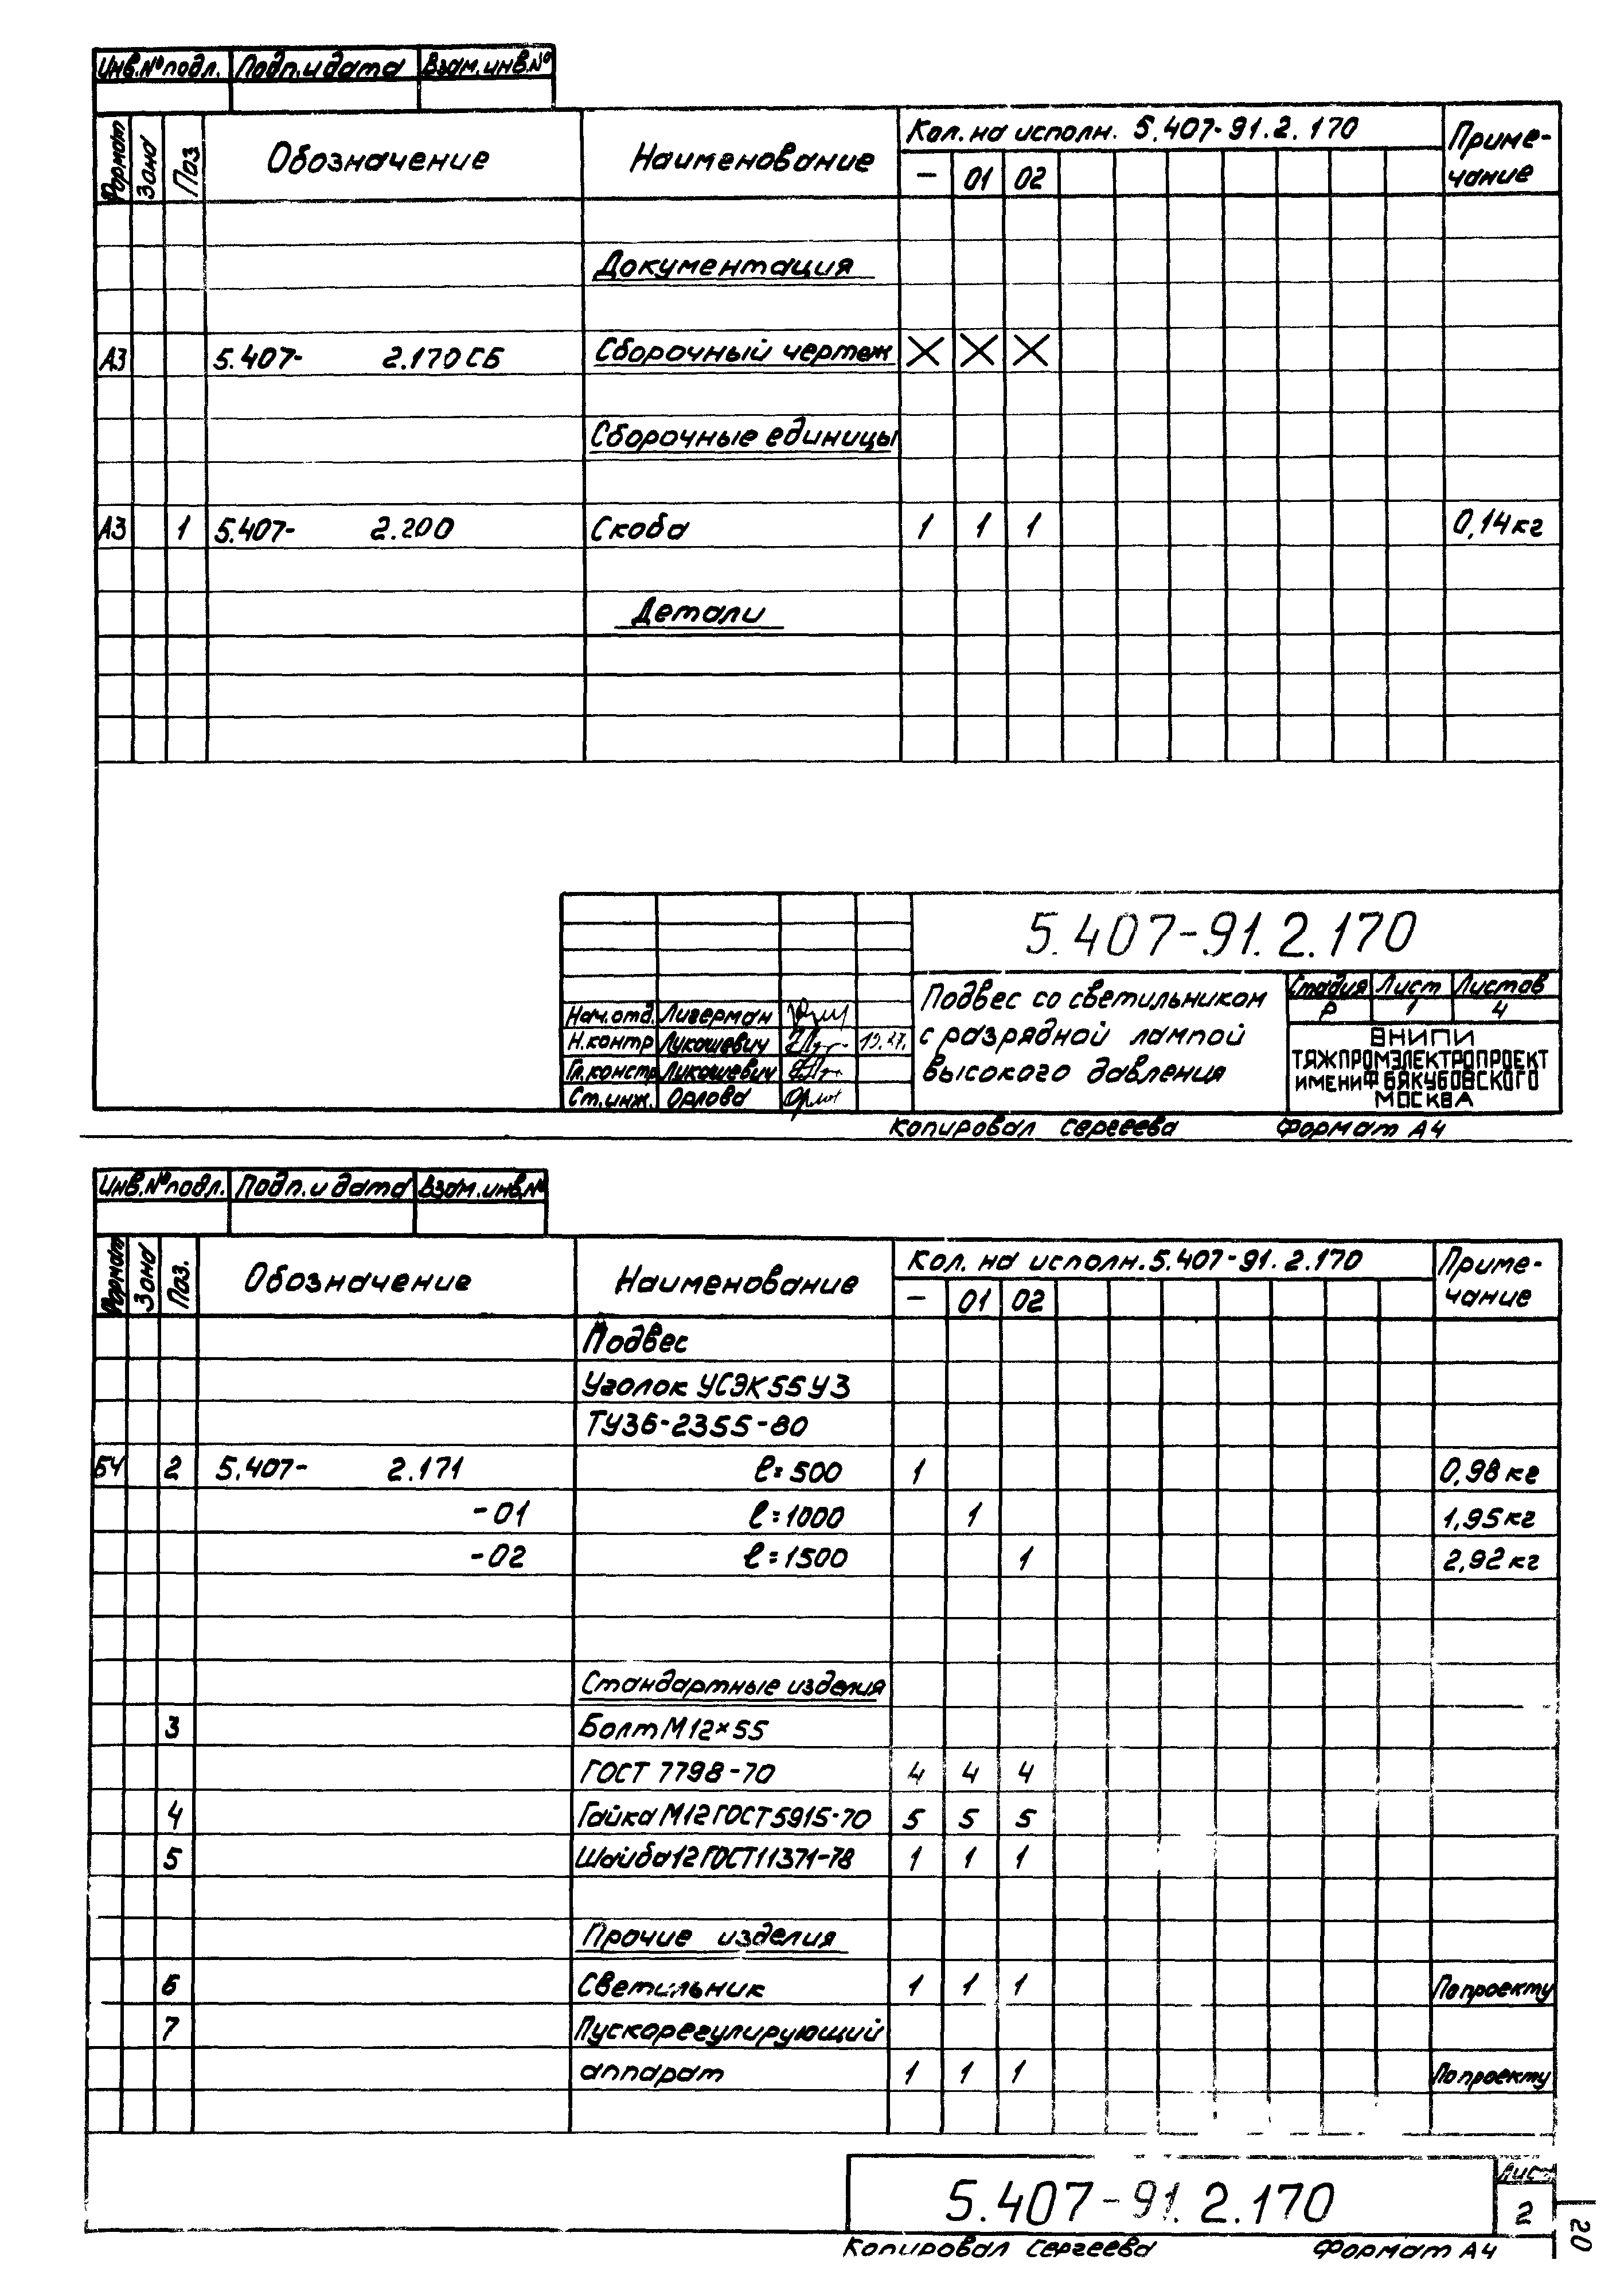 Инв.№ подл. Подп. и дата Взам.инв.№
Формат Зона Поз Обозначение Наименование Кол. на исполн. 5.407-91.2.170 Приме-
чание
– 01 02
Документация
А3 5.407- 2.170 СБ Сборочный чертеж X X X
Сборочные единицы
А3 1 5.407- 2.200 Скоба 1 1 1 0,14 кг
Детали
5.407-91.2.170
Подвес со светильником
с разрядной лампой
высокого давления
Стадия Лист Листов
Р 1 4
Нач.отд. Лигерман
Н.контр Лукашевич
Гл.констр Лукашевич
Ст.инж. Орлова
ВНИПИ
ТЯЖПРОМЭЛЕКТРОПРОЕКТ
ИМЕНИ Ф БЯКУБОВСКОГО
МОСКВА
Копировал Сергеева Формат А4
Инв.№ подл. Подп. и дата Взам.инв.№
Формат Зона Поз. Обозначение Наименование Кол. на исполн. 5.407-91.2.170 Приме-
чание
– 01 02
Подвес
Уголок УСЭК 55 У3
ТУ36-2355-80
БЧ 2 5.407- 2.171 ℓ=500 1 0,98 кг
-01 ℓ=1000 1 1,95 кг
-02 ℓ=1500 1 2,92 кг
Стандартные изделия
3 Болт М12×55
ГОСТ 7798-70 4 4 4
4 Гайка М12 ГОСТ 5915-70 5 5 5
5 Шайба 12 ГОСТ 11371-78 1 1 1
Прочие изделия
6 Светильник 1 1 1 По проекту
7 Пускорегулирующий
аппарат 1 1 1 По проекту
5.407-91.2.170
Лист
2
20
Копировал Сергеева Формат А4